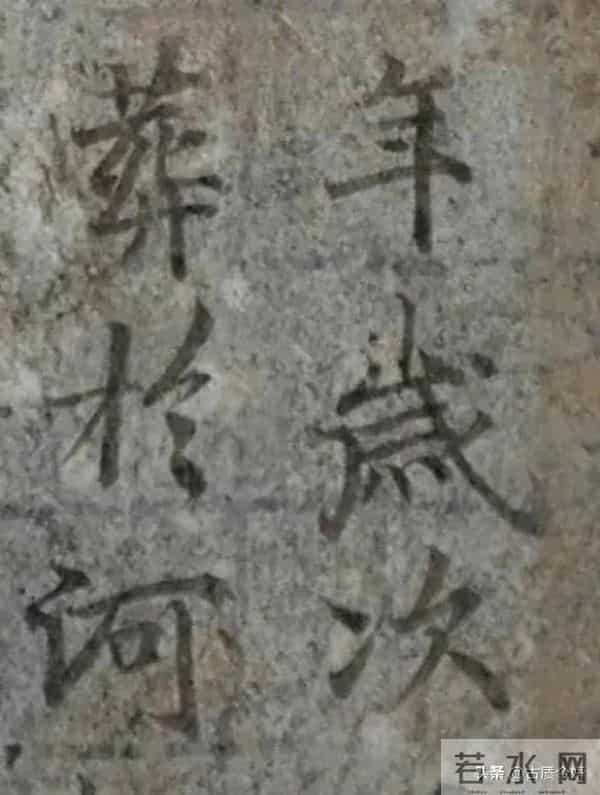 年歲次
葬於河
若水网
头条 @古质今妍